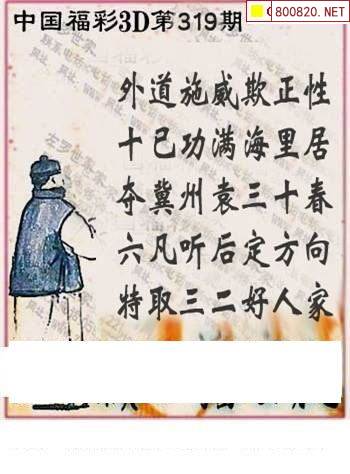 中国福彩3D第319期
800820.NET
外道施威欺正性
十已功满海里居
夺冀州袁三十春
六凡听后定方向
特取三二好人家